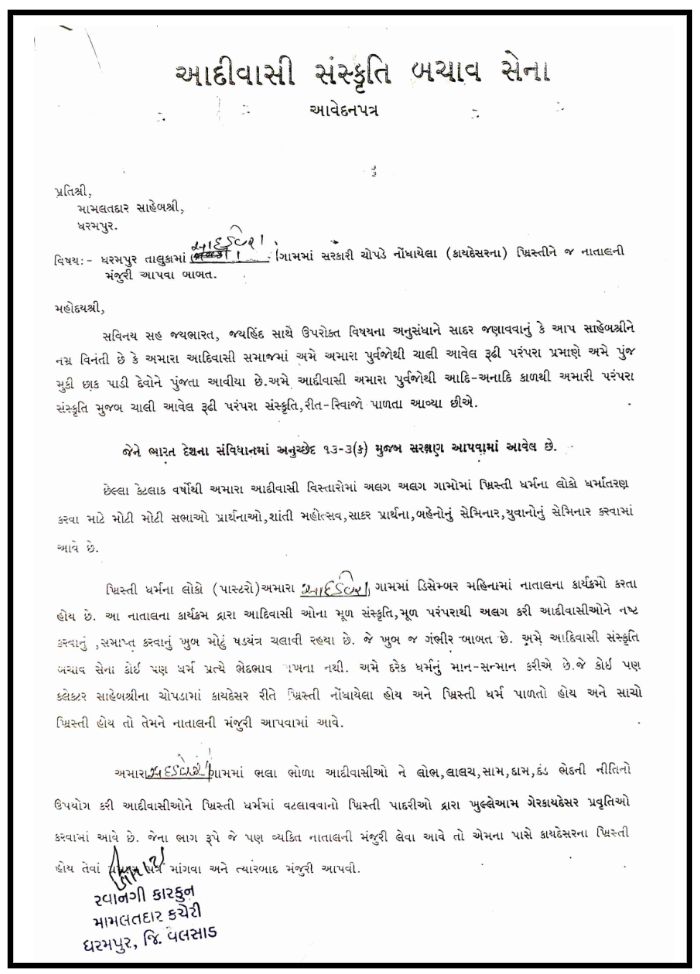 આદીવાસી સંસ્કૃતિ બચાવ સેના
આવેદનપત્ર
પ્રતિશ્રી,
મામલતદાર સાહેબશ્રી,
ધરમપુર.
વિષય:- ધરમપુર તાલુકામાં ગામમાં સરકારી ચોપડે નોંધાયેલા (કાયદેસરના) ખ્રિસ્તીને જ નાતાલની
મંજુરી આપવા બાબત.
મહોદયશ્રી,
સવિનય સહ જયભારત, જયહિંદ સાથે ઉપરોક્ત વિષયના અનુસંધાને સાદર જણાવવાનું કે આપ સાહેબશ્રીને
નમ્ર વિનંતી છે કે અમારા આદિવાસી સમાજમાં અમે અમારા પુર્વજોથી ચાલી આવેલ રૂઢી પરંપરા પ્રમાણે અમે પુંજ
મુકી છાક પાડી દેવોને પુંજતા આવીયા છે.અમે આદીવાસી અમારા પુર્વજોથી આદિ-અનાદિ કાળથી અમારી પરંપરા
સંસ્કૃતિ મુજબ ચાલી આવેલ રૂઢી પરંપરા સંસ્કૃતિ,રીત-રિવાજો પાળતા આવ્યા છીએ.
જેને ભારત દેશના સંવિધાનમાં અનુચ્છેદ ૧૩-૩(ક) મુજબ સરક્ષણ આપવામાં આવેલ છે.
છેલ્લા કેટલાક વર્ષોથી અમારા આદીવાસી વિસ્તારોમાં અલગ અલગ ગામોમાં ખ્રિસ્તી ધર્મના લોકો ધર્માતરણ
કરવા માટે મોટી મોટી સભાઓ પ્રાર્થનાઓ,શાંતી મહોત્સવ,સાકર પ્રાર્થના,બહેનોનું સેમિનાર,યુવાનોનું સેમિનાર કરવામાં
આવે છે.
ખ્રિસ્તી ધર્મના લોકો (પાસ્ટરો)અમારા ગામમાં ડિસેમ્બર મહિનામાં નાતાલના કાર્યક્રમો કરતા
હોય છે. આ નાતાલના કાર્યક્રમ દ્રારા આદિવાસી ઓના મૂળ સંસ્કૃતિ,મૂળ પરંપરાથી અલગ કરી આદીવાસીઓને નષ્ટ
કરવાનું ,સમાપ્ત કરવાનું ખુબ મોટું ષડયંત્ર ચલાવી રહયા છે. જે ખુબ જ ગંભીર બાબત છે. અમે આદિવાસી સંસ્કૃતિ
બચાવ સેના કોઈ પણ ધર્મ પ્રત્યે ભેદભાવ નથી. અમે દરેક ધર્મનું માન-સન્માન કરીએ છે.જે કોઈ પણ
કલેક્ટર સાહેબશ્રીના ચોપડામાં કાયદેસર રીતે ખ્રિસ્તી નોંધાયેલા હોય અને ખ્રિસ્તી ધર્મ પાળતો હોય અને સાચો
ખ્રિસ્તી હોય તો તેમને નાતાલની મંજુરી આપવામાં આવે.
અમારા ગામમાં ભલા ભોળા આદીવાસીઓ ને લોભ,લાલચ,સામ,દામ,દંડ ભેદની નીતિનો
ઉપયોગ કરી આદીવાસીઓને ખ્રિસ્તી ધર્મમાં વટલાવવાનો ખ્રિસ્તી પાદરીઓ દ્રારા ખુલ્લેઆમ ગેરકાયદેસર પ્રવૃતિઓ
કરવામાં આવે છે. જેના ભાગ રૂપે જે પણ વ્યકિત નાતાલની મંજુરી લેવા આવે તો એમના પાસે કાયદેસરના ખ્રિસ્તી
હોય તેવાં માંગવા અને ત્યારબાદ મંજુરી આપવી.
રવાનગી કારકુન
મામલતદાર કચેરી
ધરમપુર, જિ. વલસાડ